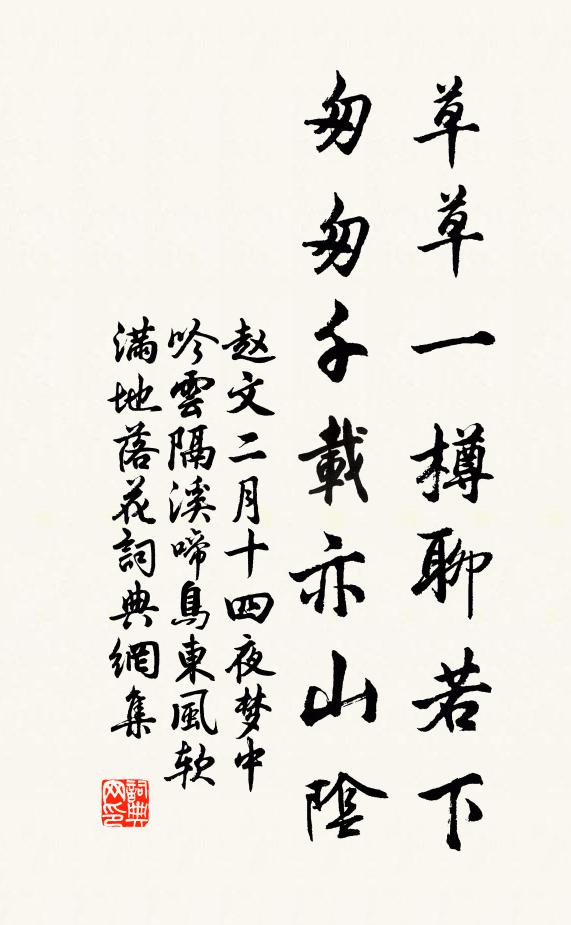 草草一樽聊若下
匆匆千載亦山陰
赵文二月十四夜梦中
吟雲隔溪啼鳥東風軟
满地落花詞典網集
詞典网印